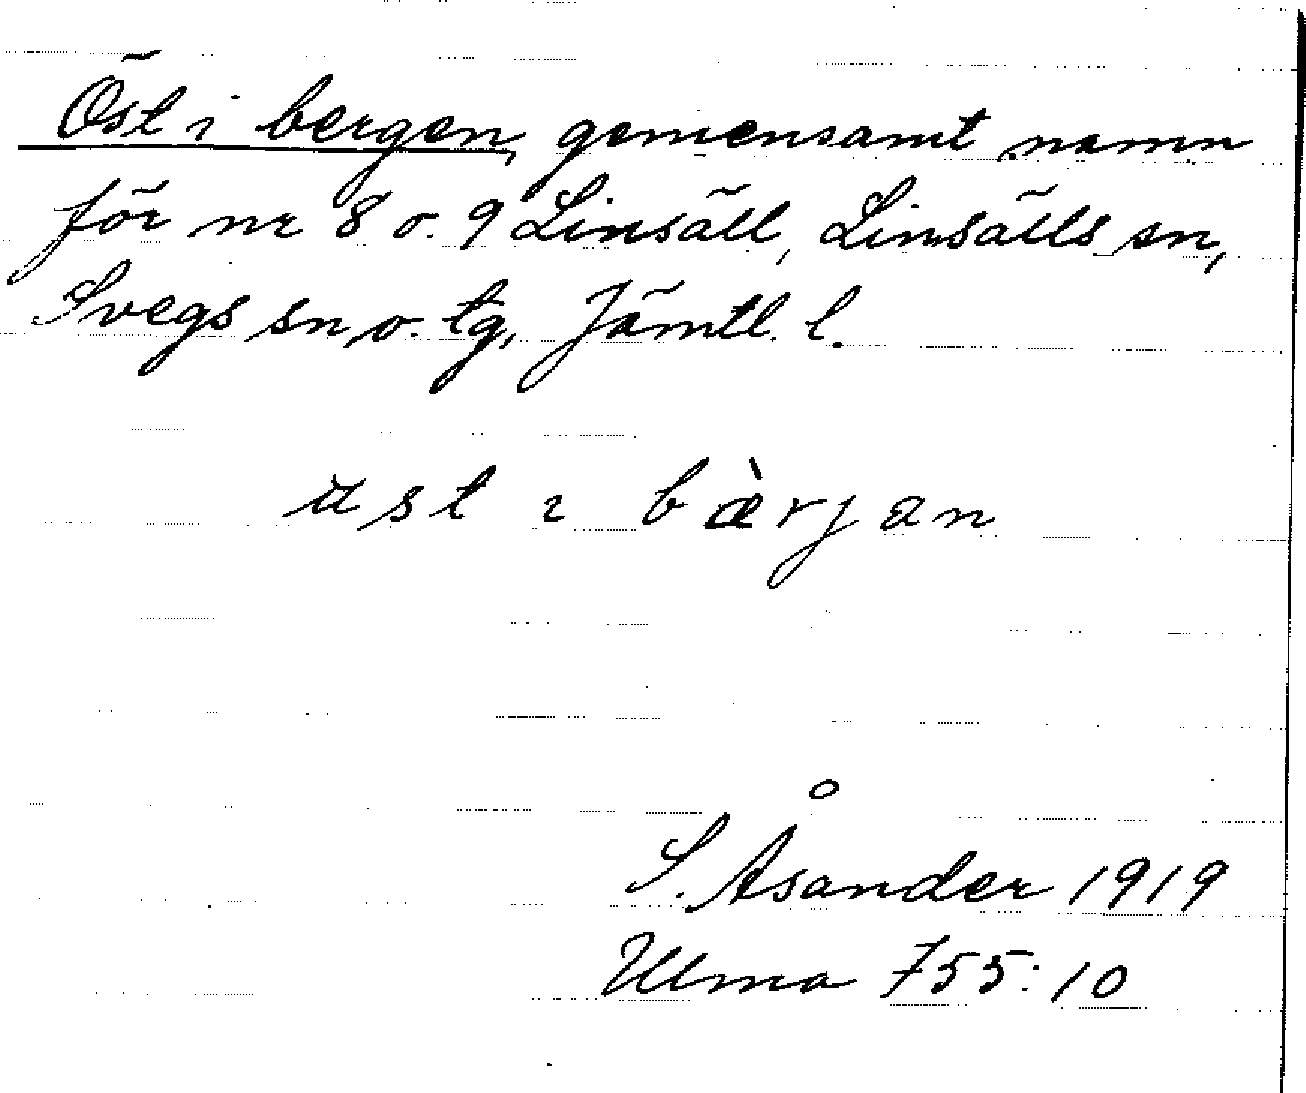 Öst i bergen, gemensamt namn
för nr 8 o. 9 Linsäll, Linsälls sn,
Svegs sn o. tg, Jämtl. l.
ust ı bæ̀rjan
S. Åsander 1919
Ulma 755:10